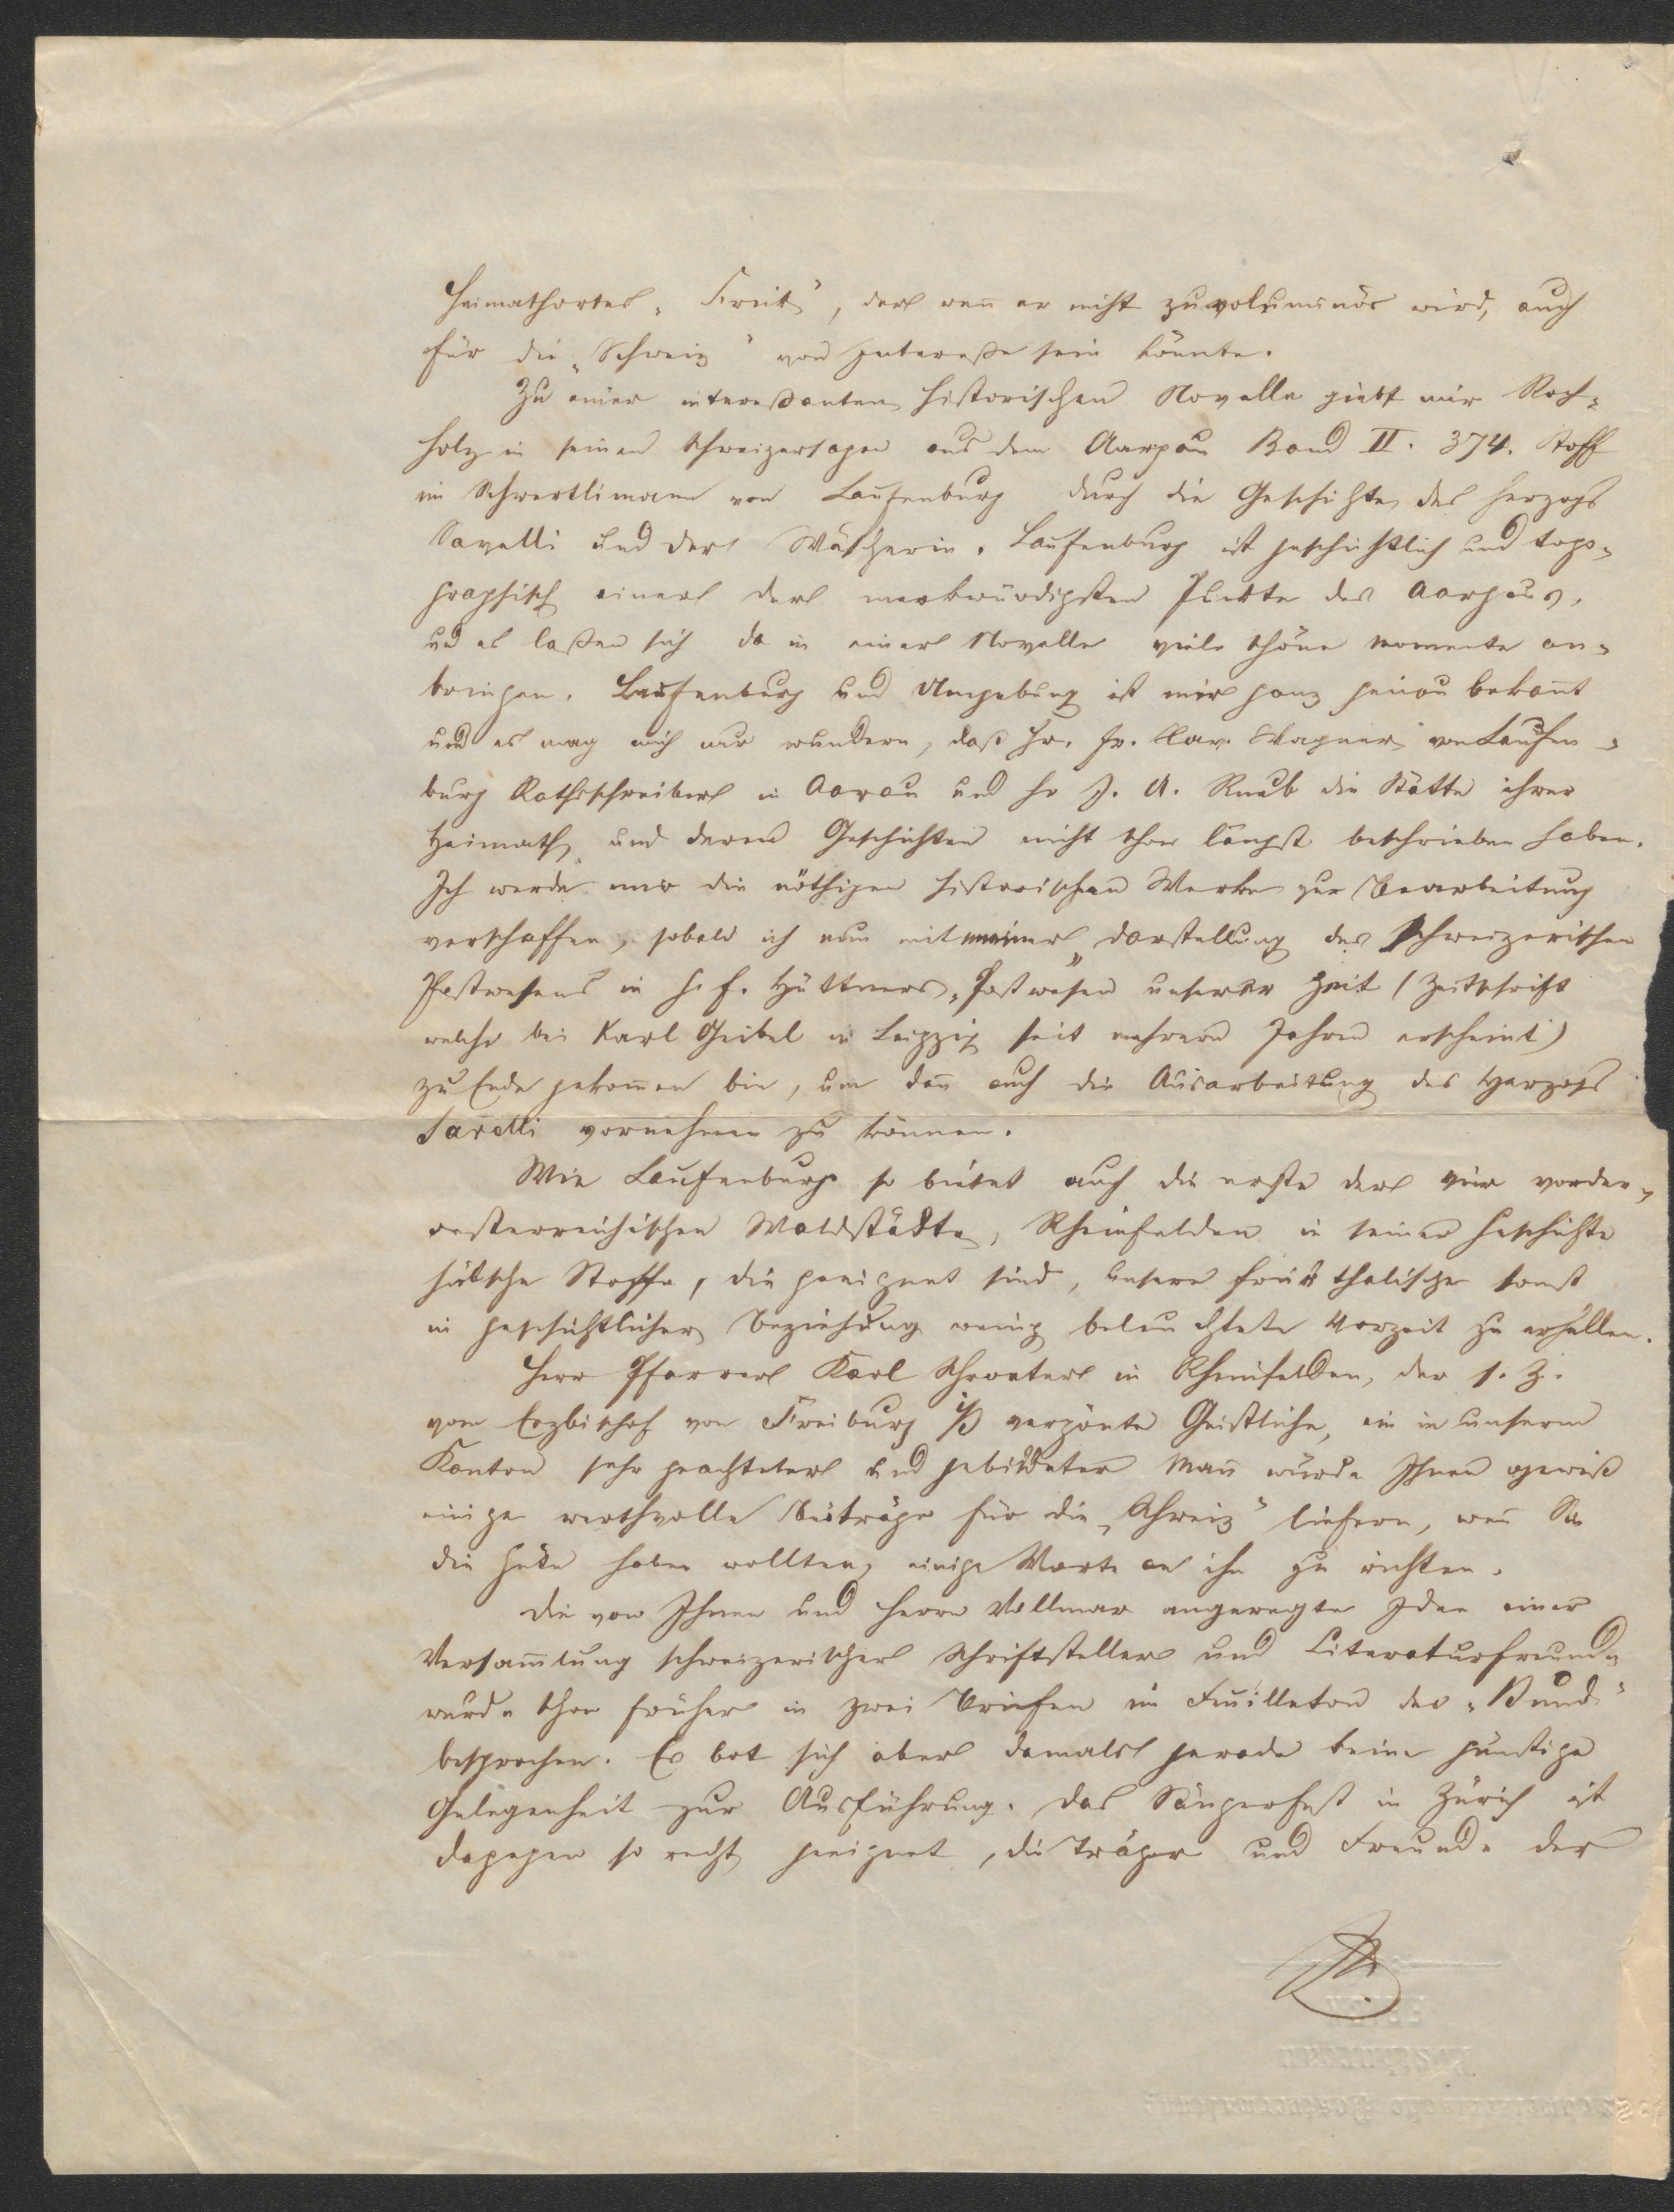 Heimathortes „Frick", der wen̄ er nicht zu voluminös wird, auch
für die „Schweiz" von Intereße sein könnte.
Zu einer intereßanten historischen Novelle giebt mir Roch-
holz in seinen Schweizersagen aus dem Aargau Band II. 374. Stoff
im Schwertlimann von Laufenburg durch die Geschichte des Herzogs
Savelli und der Wäscherin. Laufenburg ist geschichtlich und topo-
graphisch einer der merkwürdigsten Punkte des Aargaus,
und es laßen sich da in einer Novelle viele schöne Momente an-
bringen. Laufenburg und Umgebung ist mir ganz genau bekannt
und es mag mich nur wundern, daß Hr. Fr. Xav. Wagner von Laufen-
burg Rathschreiber in Aarau und Hr J. A. Rueb die Stätte ihrer
Heimath und deren Geschichten nicht schon längst beschrieben haben.
Ich werde mir die nöthigen historischen Werke zur Bearbeitung
verschaffen, sobald ich nun mit meiner Darstellung des schweizerischen
Postwesens in H. F. Hüttners „Postwesen unserer Zeit" (Zeitschrift
welche bei Karl Geibel in Leipzig seit mehrern Jahren erscheint)
zu Ende gekom̄en bin, um dan̄ auch die Ausarbeitung des Herzogs
Savelli vornehmen zu können.
Wie Laufenburg so bietet auch die erste der vier vorder-
oesterreichischen Waldstädte, Rheinfelden in seiner Geschichte
hübsche Stoffe, die geeignet sind, unsere frickthalische sonst
in geschichtlicher Beziehung wenig beleuchtete Vorzeit zu erhellen.
Herr Pfarrer Karl Schröter in Rheinfelden, der s. Z.
vom Erzbischof von Freiburg i/B verpönte Geistliche, ein in unserm
Kanton sehr geachteter und gebildeter Man̄ würde Ihnen gewiß
einige werthvolle Beiträge für die „Schweiz" liefern, wen̄ Sie
die Güte haben wollten, einige Worte an ihn zu richten.
Die von Ihnen und Herrn Vollmar angeregte Idee einer
Versam̄lung schweizerischer Schriftsteller und Literaturfreunde
wurde schon früher in zwei Briefen im Feuilleton des „Bund"
besprochen. Es bot sich aber damals gerade keine günstige
Gelegenheit zur Ausführung. Das Sängerfest in Zürich ist
dagegen so recht geeignet, die Träger und Freunde der